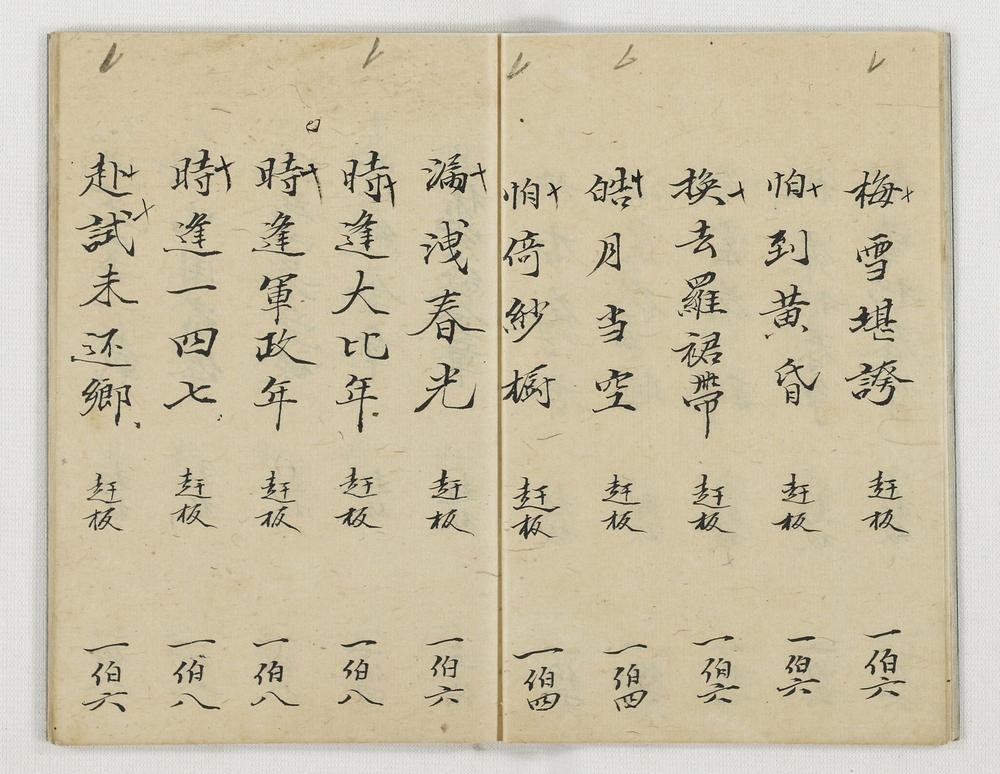 梅雪堪誇 赶板 一伯六
怕到黄昏 赶板 一伯六
换去羅裙帶 赶板 一伯六
皓月当空 赶板 一伯四
怕倚紗橱 赶板 一伯四
漏洩春光 赶板 一伯六
時逢大比年 赶板 一伯八
時逢軍政年 赶板 一伯八
時逢一四七 赶板 一伯八
赴試未还鄉 赶板 一伯六